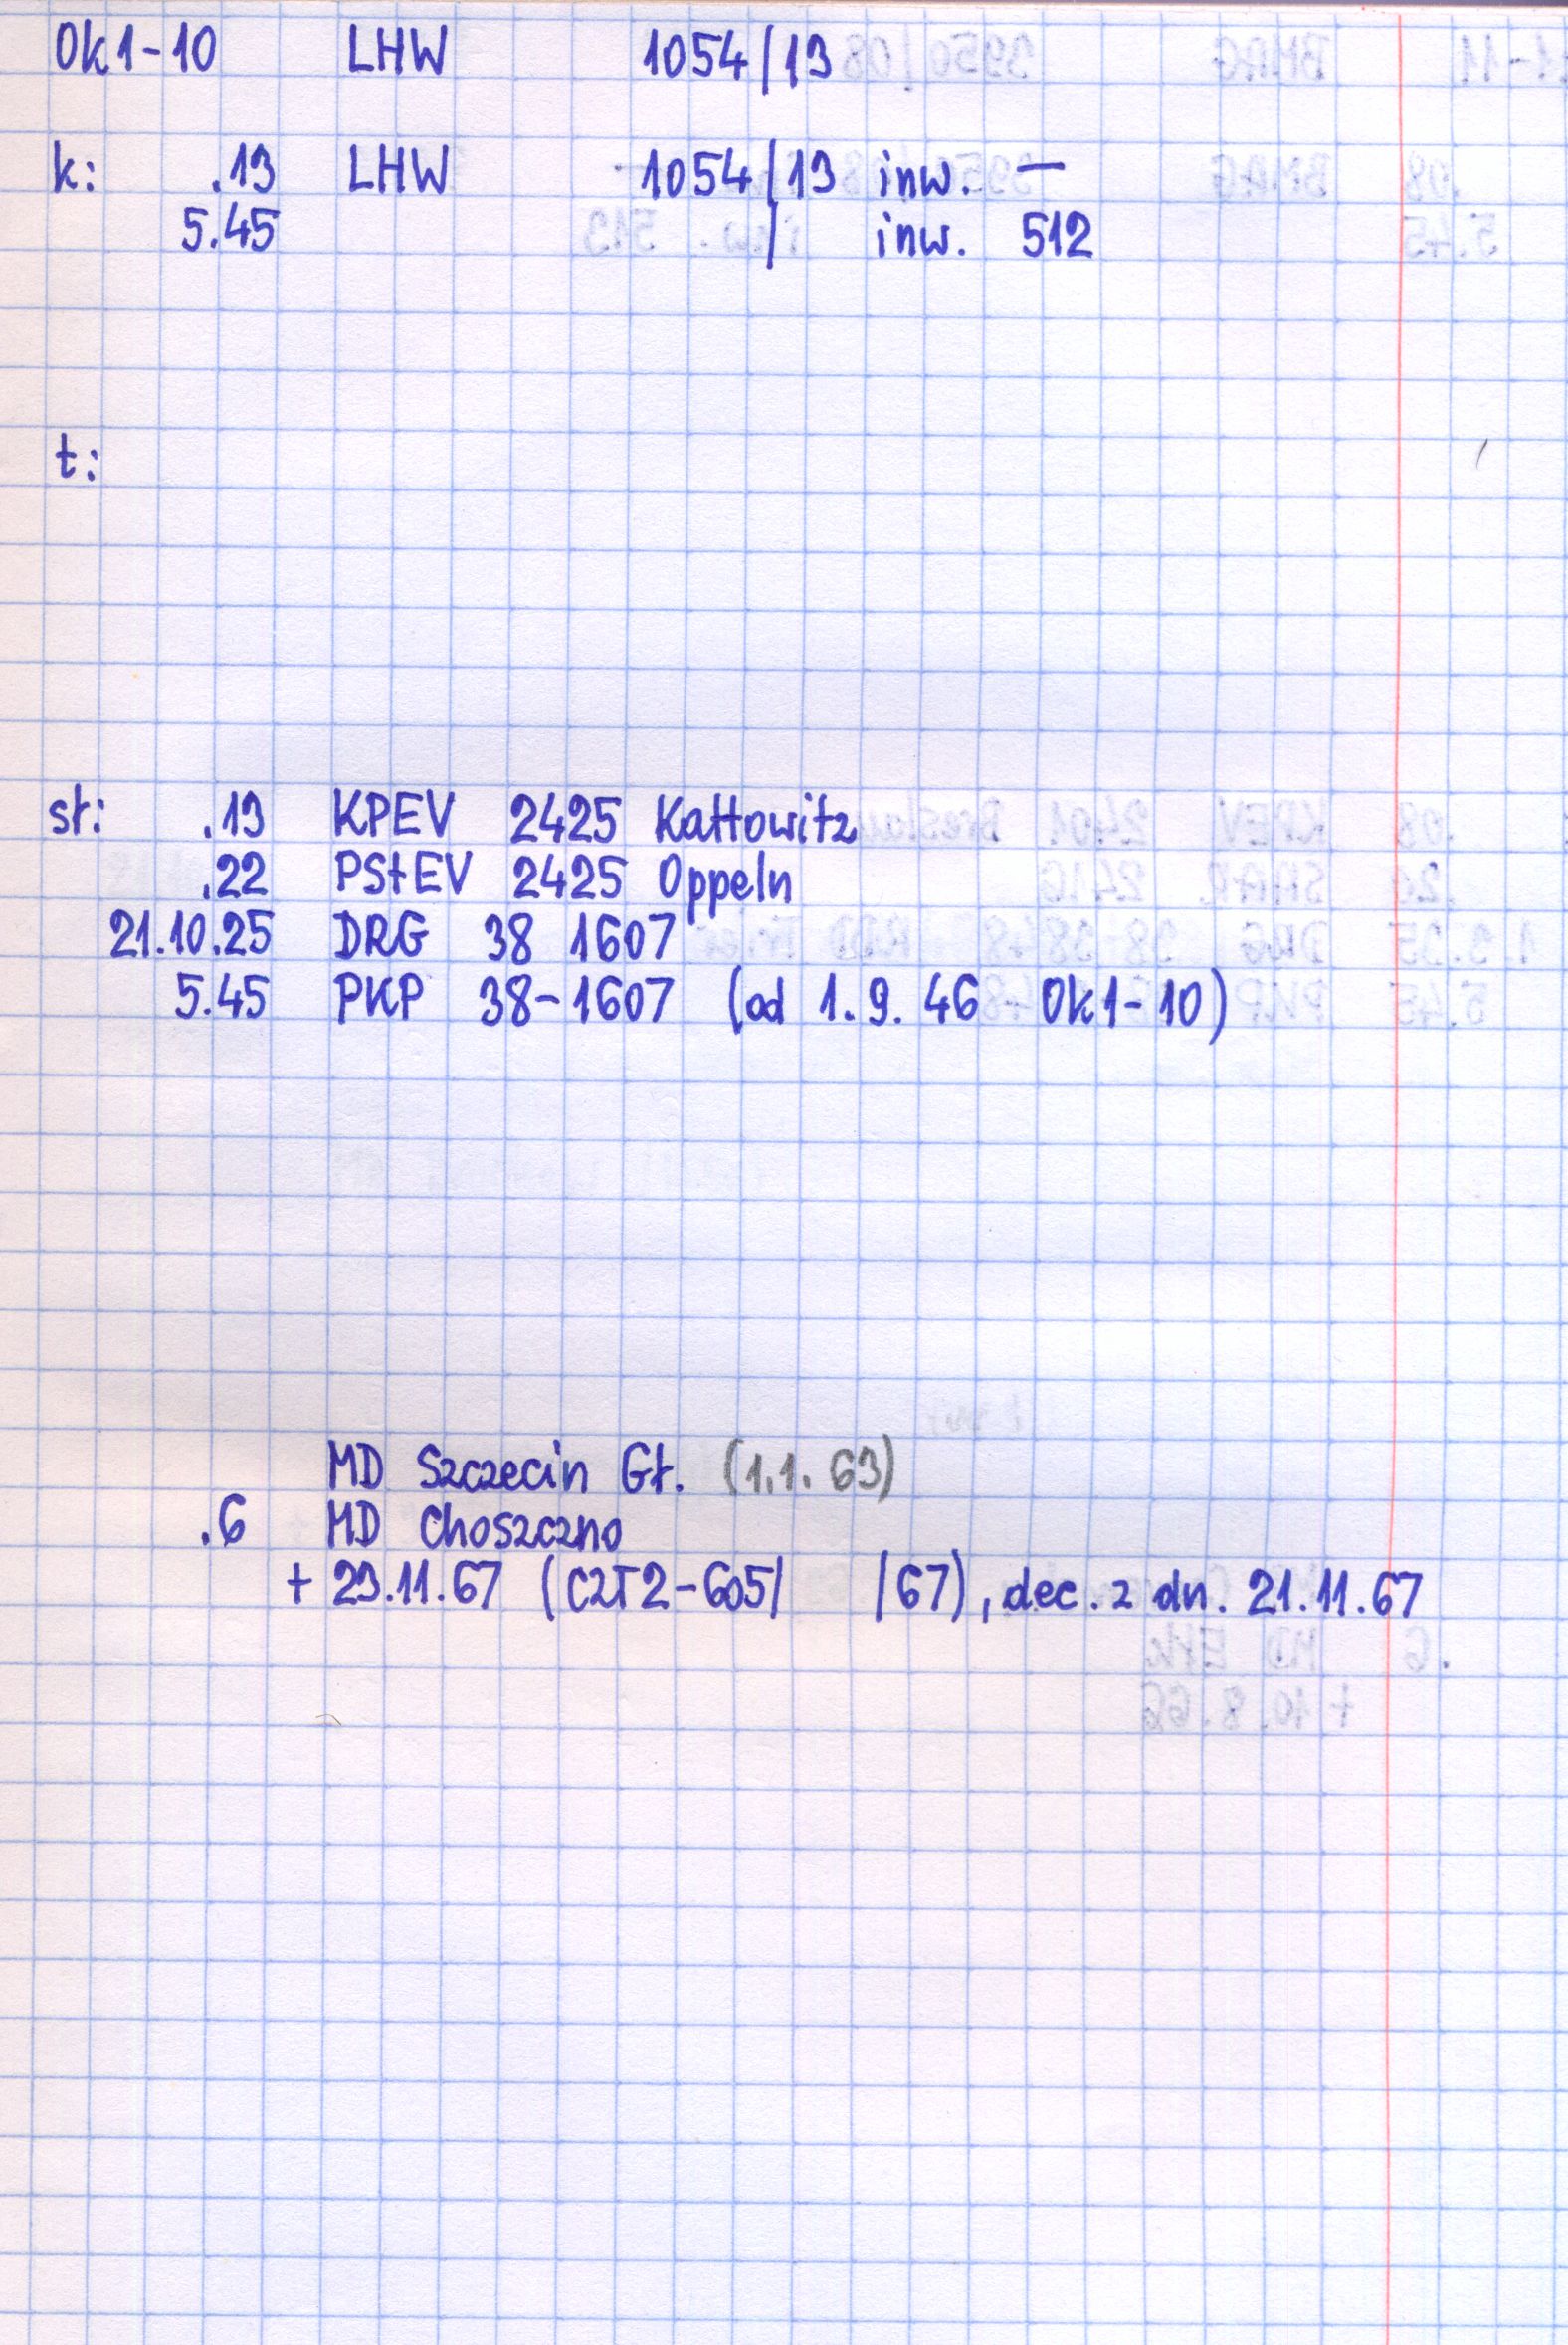 Ok1-10 LHW 1054/13
k: .13 LHW 1054/13 inw. —
5.45 / inw. 512
t:
st: .13 KPEV 2425 Kattowitz
.22 PStEV 2425 Oppeln
21.10.25 DRG 38 1607
5.45 PKP 38-1607 (od 1.9.46 Ok1-10)
MD Szczecin Gł. (1.1.63)
.6 MD Choszczno
+ 23.11.67 (CZT2-605/ /67), dec. z dn. 21.11.67